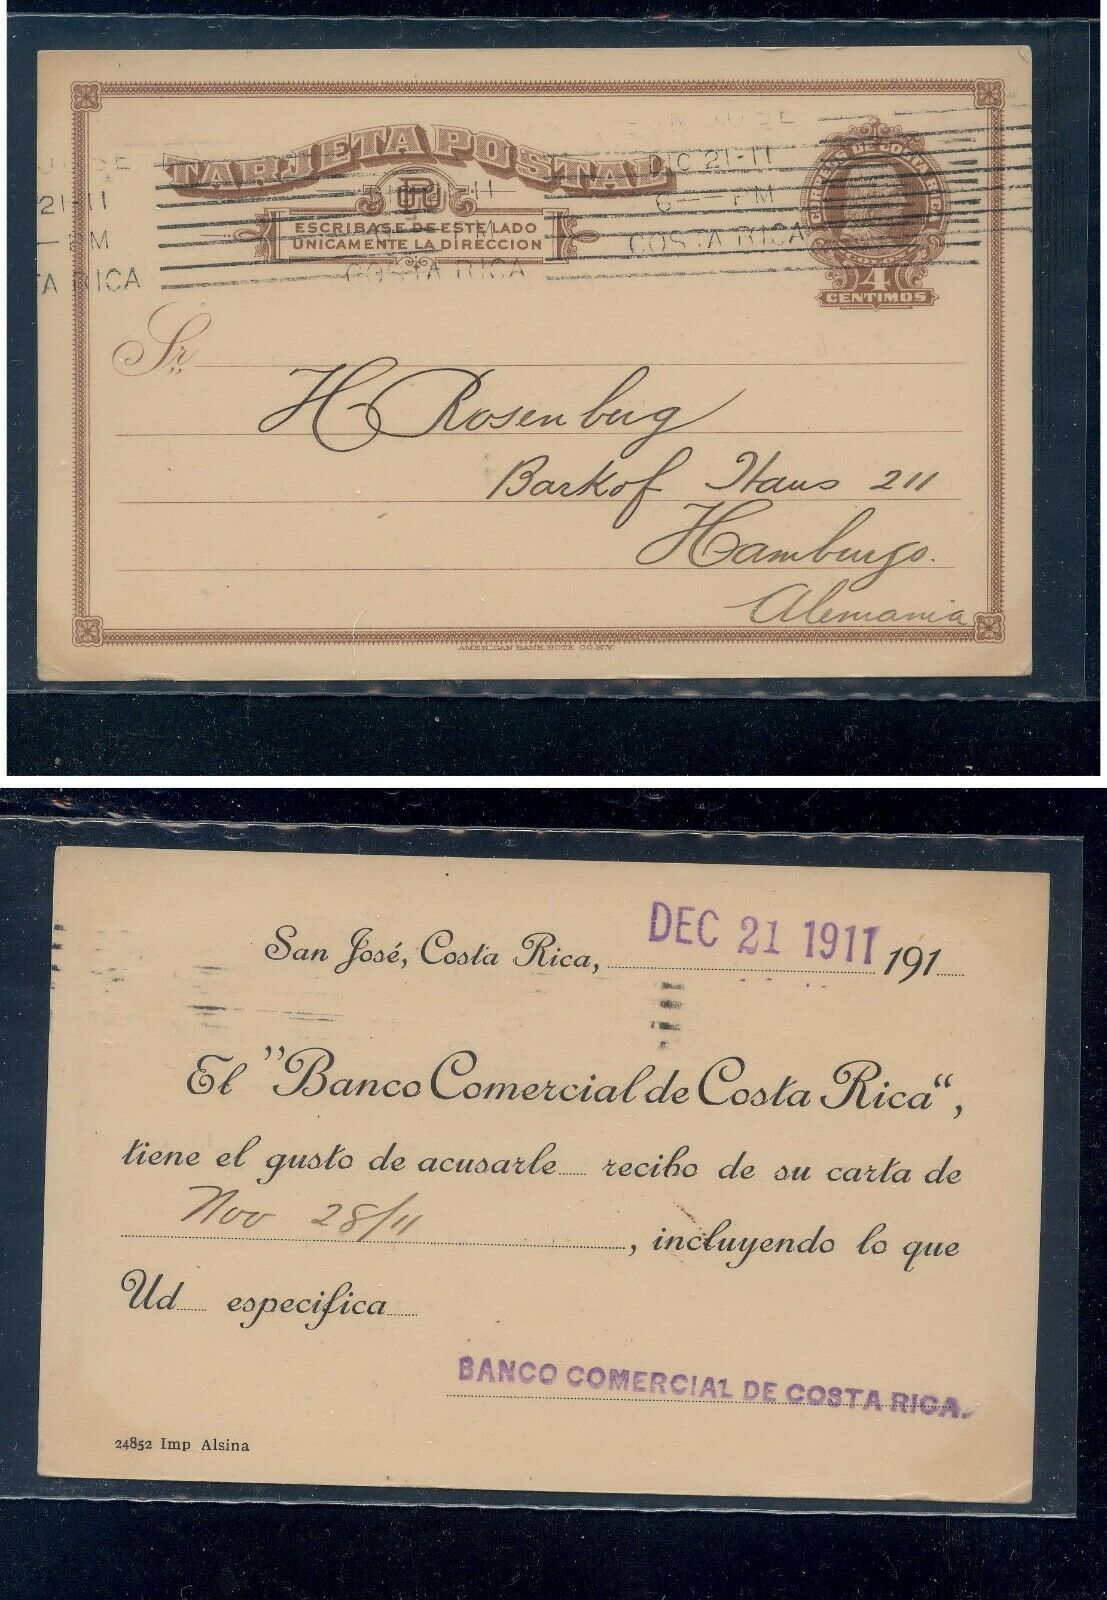 TARJETA POSTAL
ESCRIBASE DE ESTE LADO
UNICAMENTE LA DIRECCION
CORREOS DE COSTA RICA
4
CENTIMOS
DIC 21-11
6 — PM
COSTA RICA
21-11
— PM
TA RICA
COSTA RICA
Sr.
H Rosenberg
Barkof Haus 211
Hamburgo.
Alemania
AMERICAN BANK NOTE CO. N.Y.
San José, Costa Rica, DEC 21 1911 191
El "Banco Comercial de Costa Rica",
tiene el gusto de acusarle recibo de su carta de
Nov 28/11, incluyendo lo que
Ud especifica
BANCO COMERCIAL DE COSTA RICA.
24852 Imp Alsina